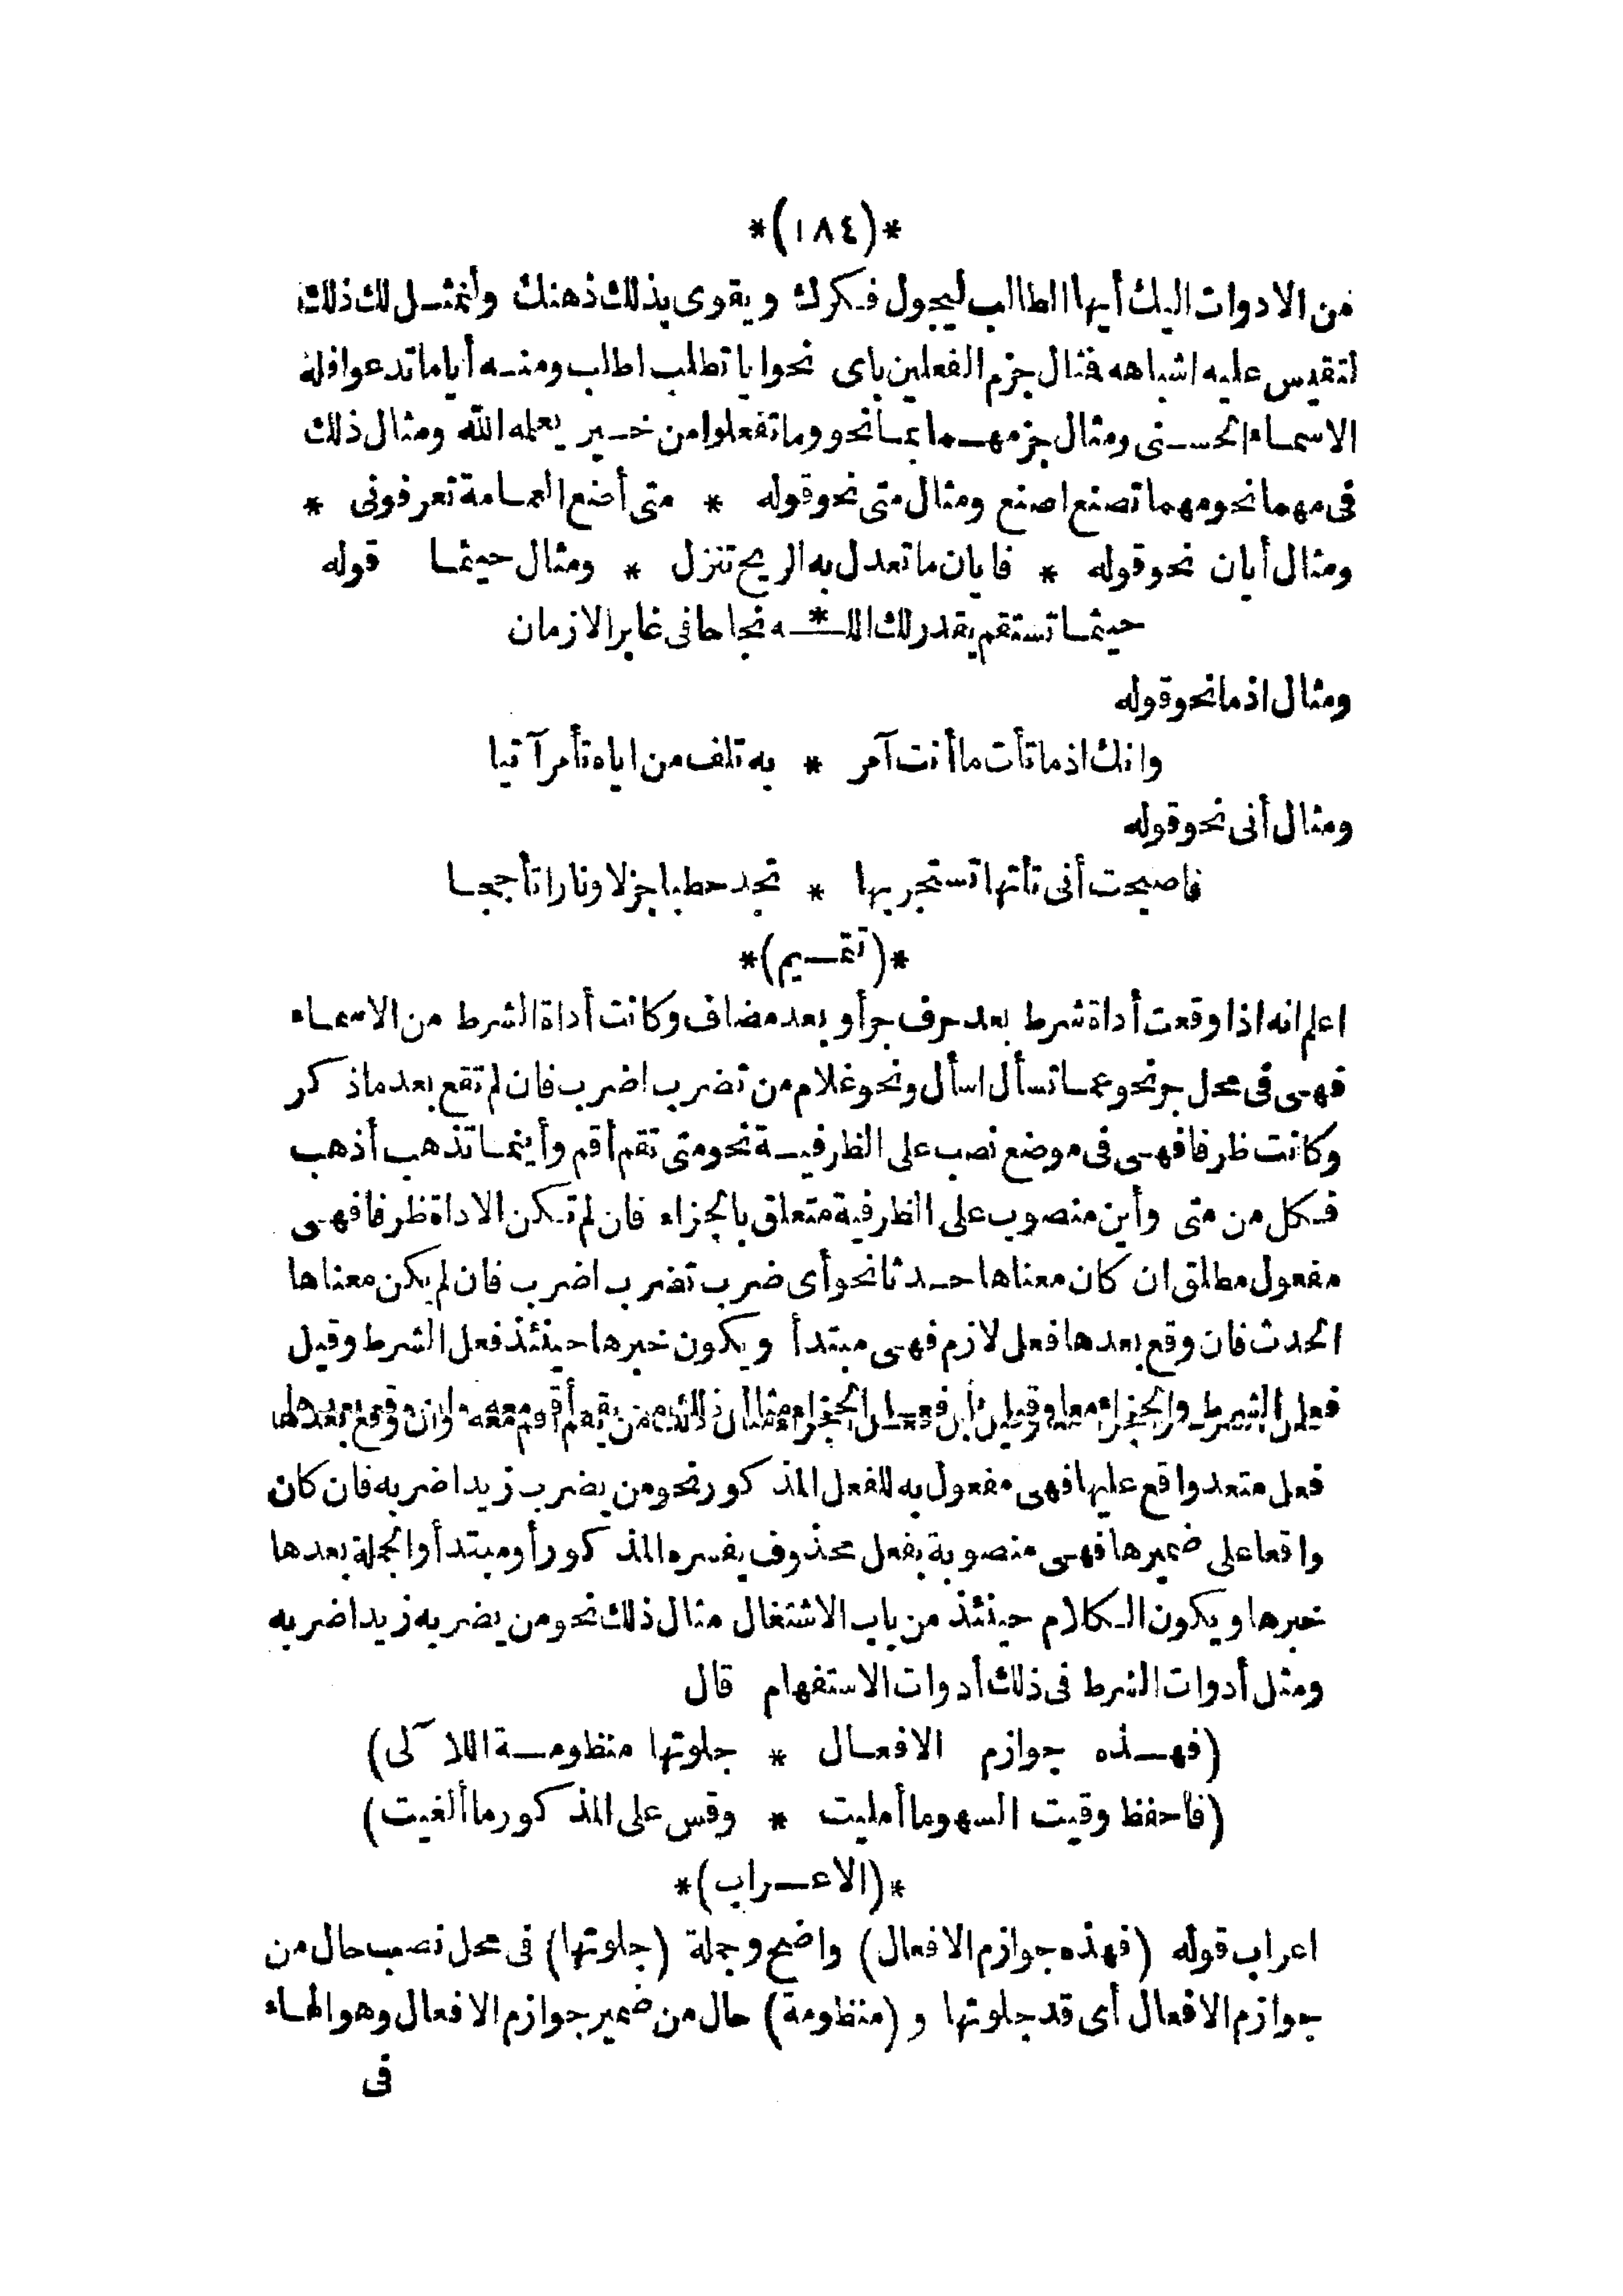 *(١٨٤)*
من الادوات اليك أيها الطالب ليجول فكرك ويقوى بذلك ذهنك ولنمثل لك ذلك
لتقيس عليه اشباهه فمثال جزم الفعلين باى نحو ايا تطلب اطلب ومنه أياما تدعوا فله
الاسماء الحسنى ومثال جزمهما بما نحو وما تفعلوا من خير يعلمه الله ومثال ذلك
فى مهما نحو مهما تصنع اصنع ومثال متى نحو قوله * متى أضع العمامة تعرفونى *
ومثال أيان نحو قوله * فايان ما تعدل به الريح تنزل * ومثال حيثما قوله
حيثما تستقم يقدر لك اللـ * ـه نجاحا فى غابر الازمان
ومثال اذما نحو قوله
وانك اذما تأت ما أنت آمر * به تلف من اياه تأمر آتيا
ومثال أنى نحو قوله
فاصبحت أنى تأتها تستجر بها * تجد حطبا جزلا ونارا تأججا
*(تقسيم)*
اعلم انه اذا وقعت أداة شرط بعد حرف جر أو بعد مضاف وكانت أداة الشرط من الاسماء
فهى فى محل جر نحو عما تسأل اسأل ونحو غلام من تضرب اضرب فان لم تقع بعد ماذكر
وكانت ظرفا فهى فى موضع نصب على الظرفية نحو متى تقم أقم وأينما تذهب أذهب
فكل من متى وأين منصوب على الظرفية متعلق بالجزاء فان لم تكن الاداة ظرفا فهى
مفعول مطلق ان كان معناها حدثا نحو أى ضرب تضرب اضرب فان لم يكن معناها
الحدث فان وقع بعدها فعل لازم فهى مبتدأ ويكون خبرها حينئذ فعل الشرط وقيل
فعل الشرط والجزاء معا وقيل بل فعل الجزاء مثال ذلك من يقم أقم معه وان وقع بعدها
فعل متعد واقع عليها فهى مفعول به للفعل المذكور نحو من يضرب زيد اضربه فان كان
واقعا على ضميرها فهى منصوبة بفعل محذوف يفسره المذكور أو مبتدأ والجملة بعدها
خبرها ويكون الكلام حينئذ من باب الاشتغال مثال ذلك نحو من يضربه زيد اضربه
ومثل أدوات الشرط فى ذلك أدوات الاستفهام قال
(فهذه جوازم الافعال * جلوتها منظومة اللآلى)
(فاحفظ وقيت السهو ما أمليت * وقس على المذكور ما ألغيت)
*(الاعراب)*
اعراب قوله (فهذه جوازم الافعال) واضح وجملة (جلوتها) فى محل نصب حال من
جوازم الافعال أى قد جلوتها و (منظومة) حال من ضمير جوازم الافعال وهو الهاء
فى